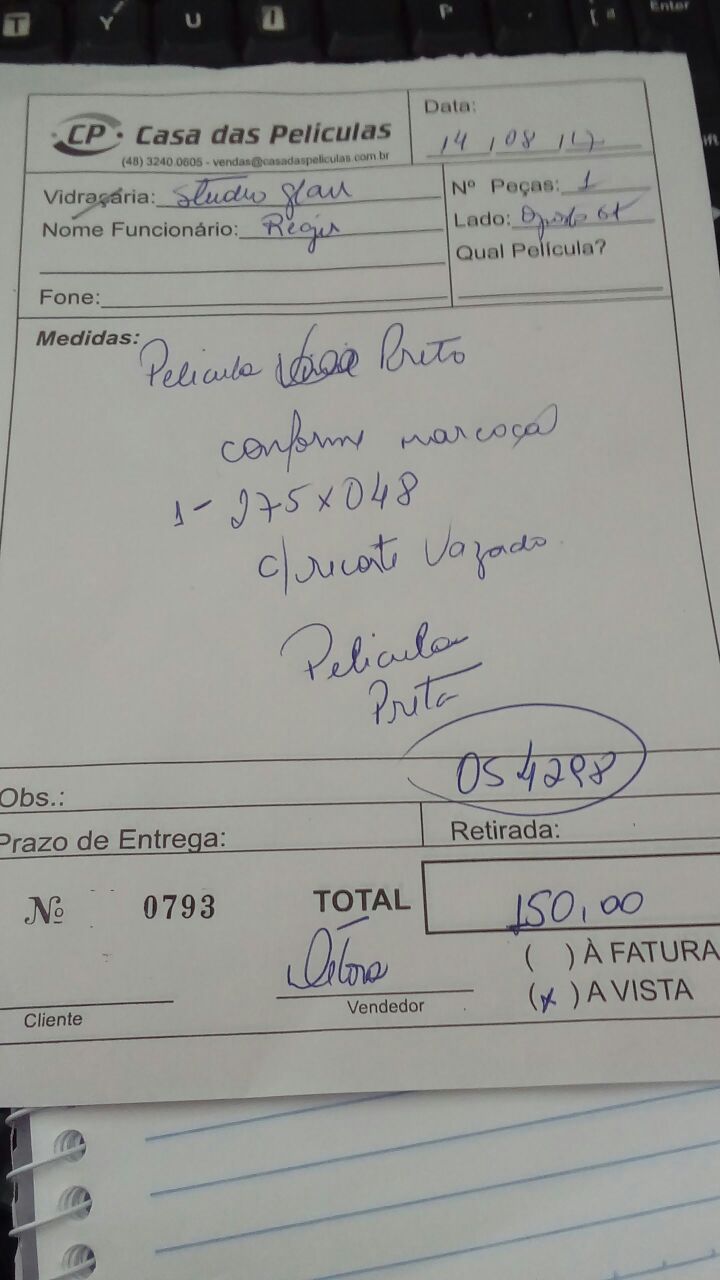 T Y U I P Enter
CP Casa das Películas
(48) 3240.0605 - vendas@casadaspeliculas.com.br
Data:
14 / 08 / 17
Vidraçaria: Studio glass
Nome Funcionário: Regis
Fone:
Nº Peças: 1
Lado: Oposto
Qual Película?
Medidas:
Pelicula Preto
conforme marcoçao
1- 275x048
c/ recorte Vazado
Pelicula
Preta
054298
Obs.:
Prazo de Entrega:
Retirada:
Nº 0793
TOTAL 150,00
( ) À FATURA
(x) A VISTA
Débora
Cliente
Vendedor